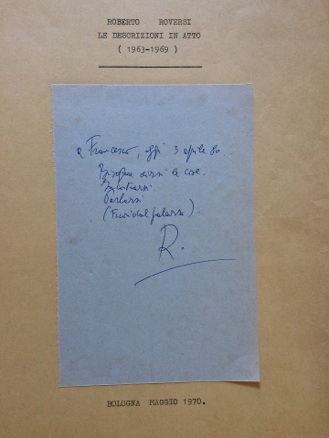 ROBERTO ROVERSI
LE DESCRIZIONI IN ATTO
( 1963-1969 )
a Francesco, oggi 3 aprile 80.
Bisogna dirsi le cose.
Incontrarsi.
Parlarsi
(Fuori dal palazzo).
R.
BOLOGNA MAGGIO 1970.